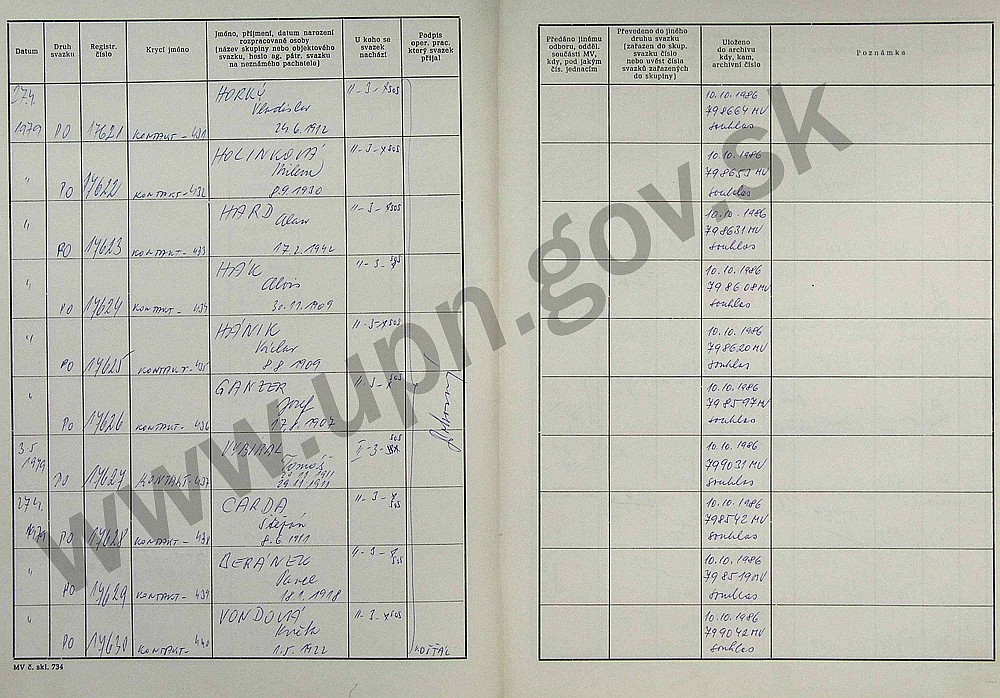 Datum
Druh
svazku
Registr.
číslo
Krycí jméno
Jméno, příjmení, datum narození
rozpracované osoby
(název skupiny nebo objektového
svazku, heslo ag. pátr. svazku
na neznámého pachatele)
U koho se
svazek
nachází
Podpis
oper. prac.
který svazek
přijal
Předáno jinému
odboru, odděl.
součásti MV,
kdy, pod jakým
čís. jednacím
Převedeno do jiného
druhu svazku
(zařazen do skup.
svazku číslo
nebo uvést čísla
svazků zařazených
do skupiny)
Uloženo
do archivu
kdy, kam,
archivní číslo
Poznámka
27.4.
1979 PO 17621 KONTAKT-431
HORKÝ
24.6.1912
II-3-
10.10.1986
798664 MV
souhlas
" PO 17622 KONTAKT-432
HOLINKOVÁ
8.9.1930
II-3-
10.10.1986
798653 MV
souhlas
" PO 17623 KONTAKT-433
HARD
17.2.1942
II-3-
10.10.1986
798631 MV
souhlas
" PO 17624 KONTAKT-434
HÁK
Alois
30.11.1909
II-3-
10.10.1986
798608 MV
souhlas
" PO 17625 KONTAKT-435
HÁNIK
Václav
8.8.1909
II-3-
10.10.1986
798620 MV
souhlas
" PO 17626 KONTAKT-436
GANZER
Josef
1907
II-3-
10.10.1986
798597 MV
souhlas
3.5
1979 PO 17627 KONTAKT-437
VYBIRAL
Tomáš
29.11.1911
II-3-
10.10.1986
799031 MV
souhlas
27.4.
1979 PO 17628 KONTAKT-438
CARDA
Štefan
8.6.1911
II-3-
10.10.1986
798542 MV
souhlas
" PO 17629 KONTAKT-439
BERÁNEK
Pavel
18.1.1918
II-3-
10.10.1986
798519 MV
souhlas
" PO 17630 KONTAKT-440
VONDOVÁ
Květa
1.5.1922
II-3-
KOŠŤÁL
10.10.1986
799042 MV
souhlas
MV č. skl. 734
www.upn.gov.sk